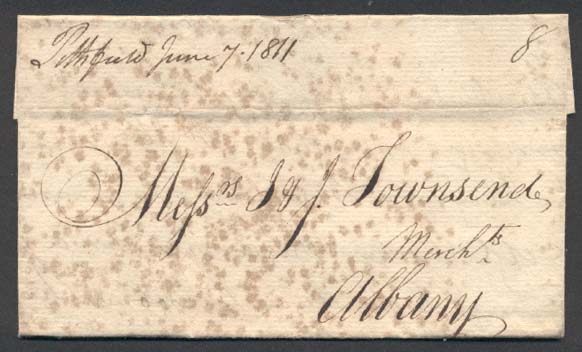 Pittsfield June 7. 1811 8
Messrs I & J. Townsend,
Merchts
Albany